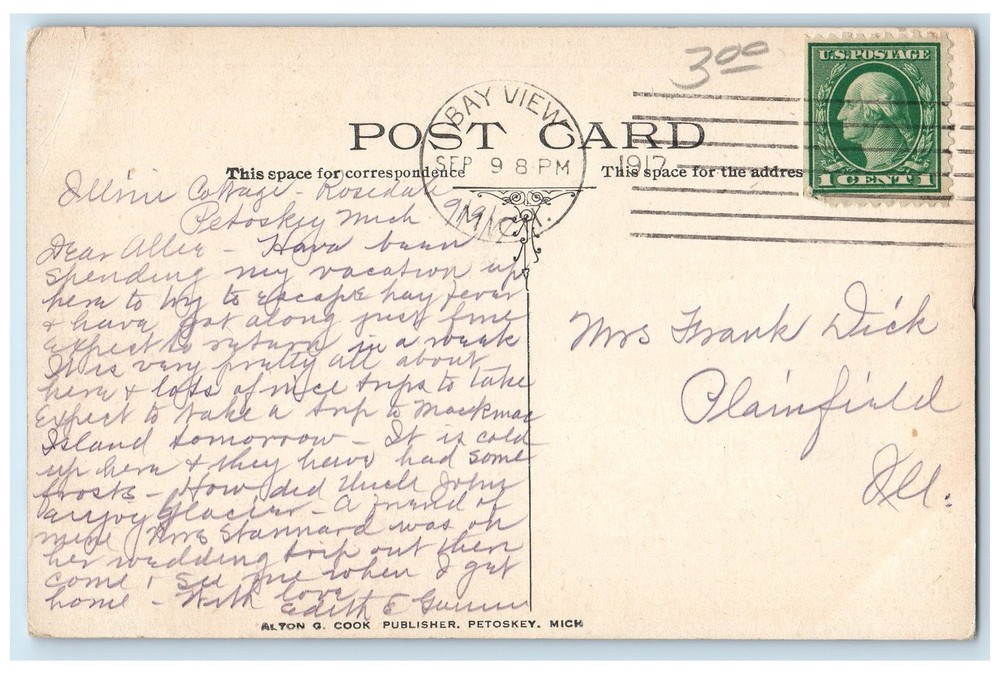 3.00
U.S.POSTAGE
1 CENT 1
BAY VIEW
SEP 9 8 PM
1917
MICH.
POST CARD
This space for correspondence
This space for the addres
Cottage - Rosedale
Petoskey Mich 9/9
Dear Allie - Have been
spending my vacation up
here to try to escape hay fever
& have got along just fine
Expect to return in a week
It is very pretty all about
here & lots of nice trips to take
Expect to take a trip to Mackinac
Island tomorrow - It is cold
up here & they have had some
frosts - How did Uncle John
enjoy Glacier - A friend of
mine Mrs Stannard was on
her wedding trip out there
Come & see me when I get
home - With love
Edith E
Mrs Frank Dick
Plainfield
Ill.
ALTON G. COOK PUBLISHER, PETOSKEY, MICH